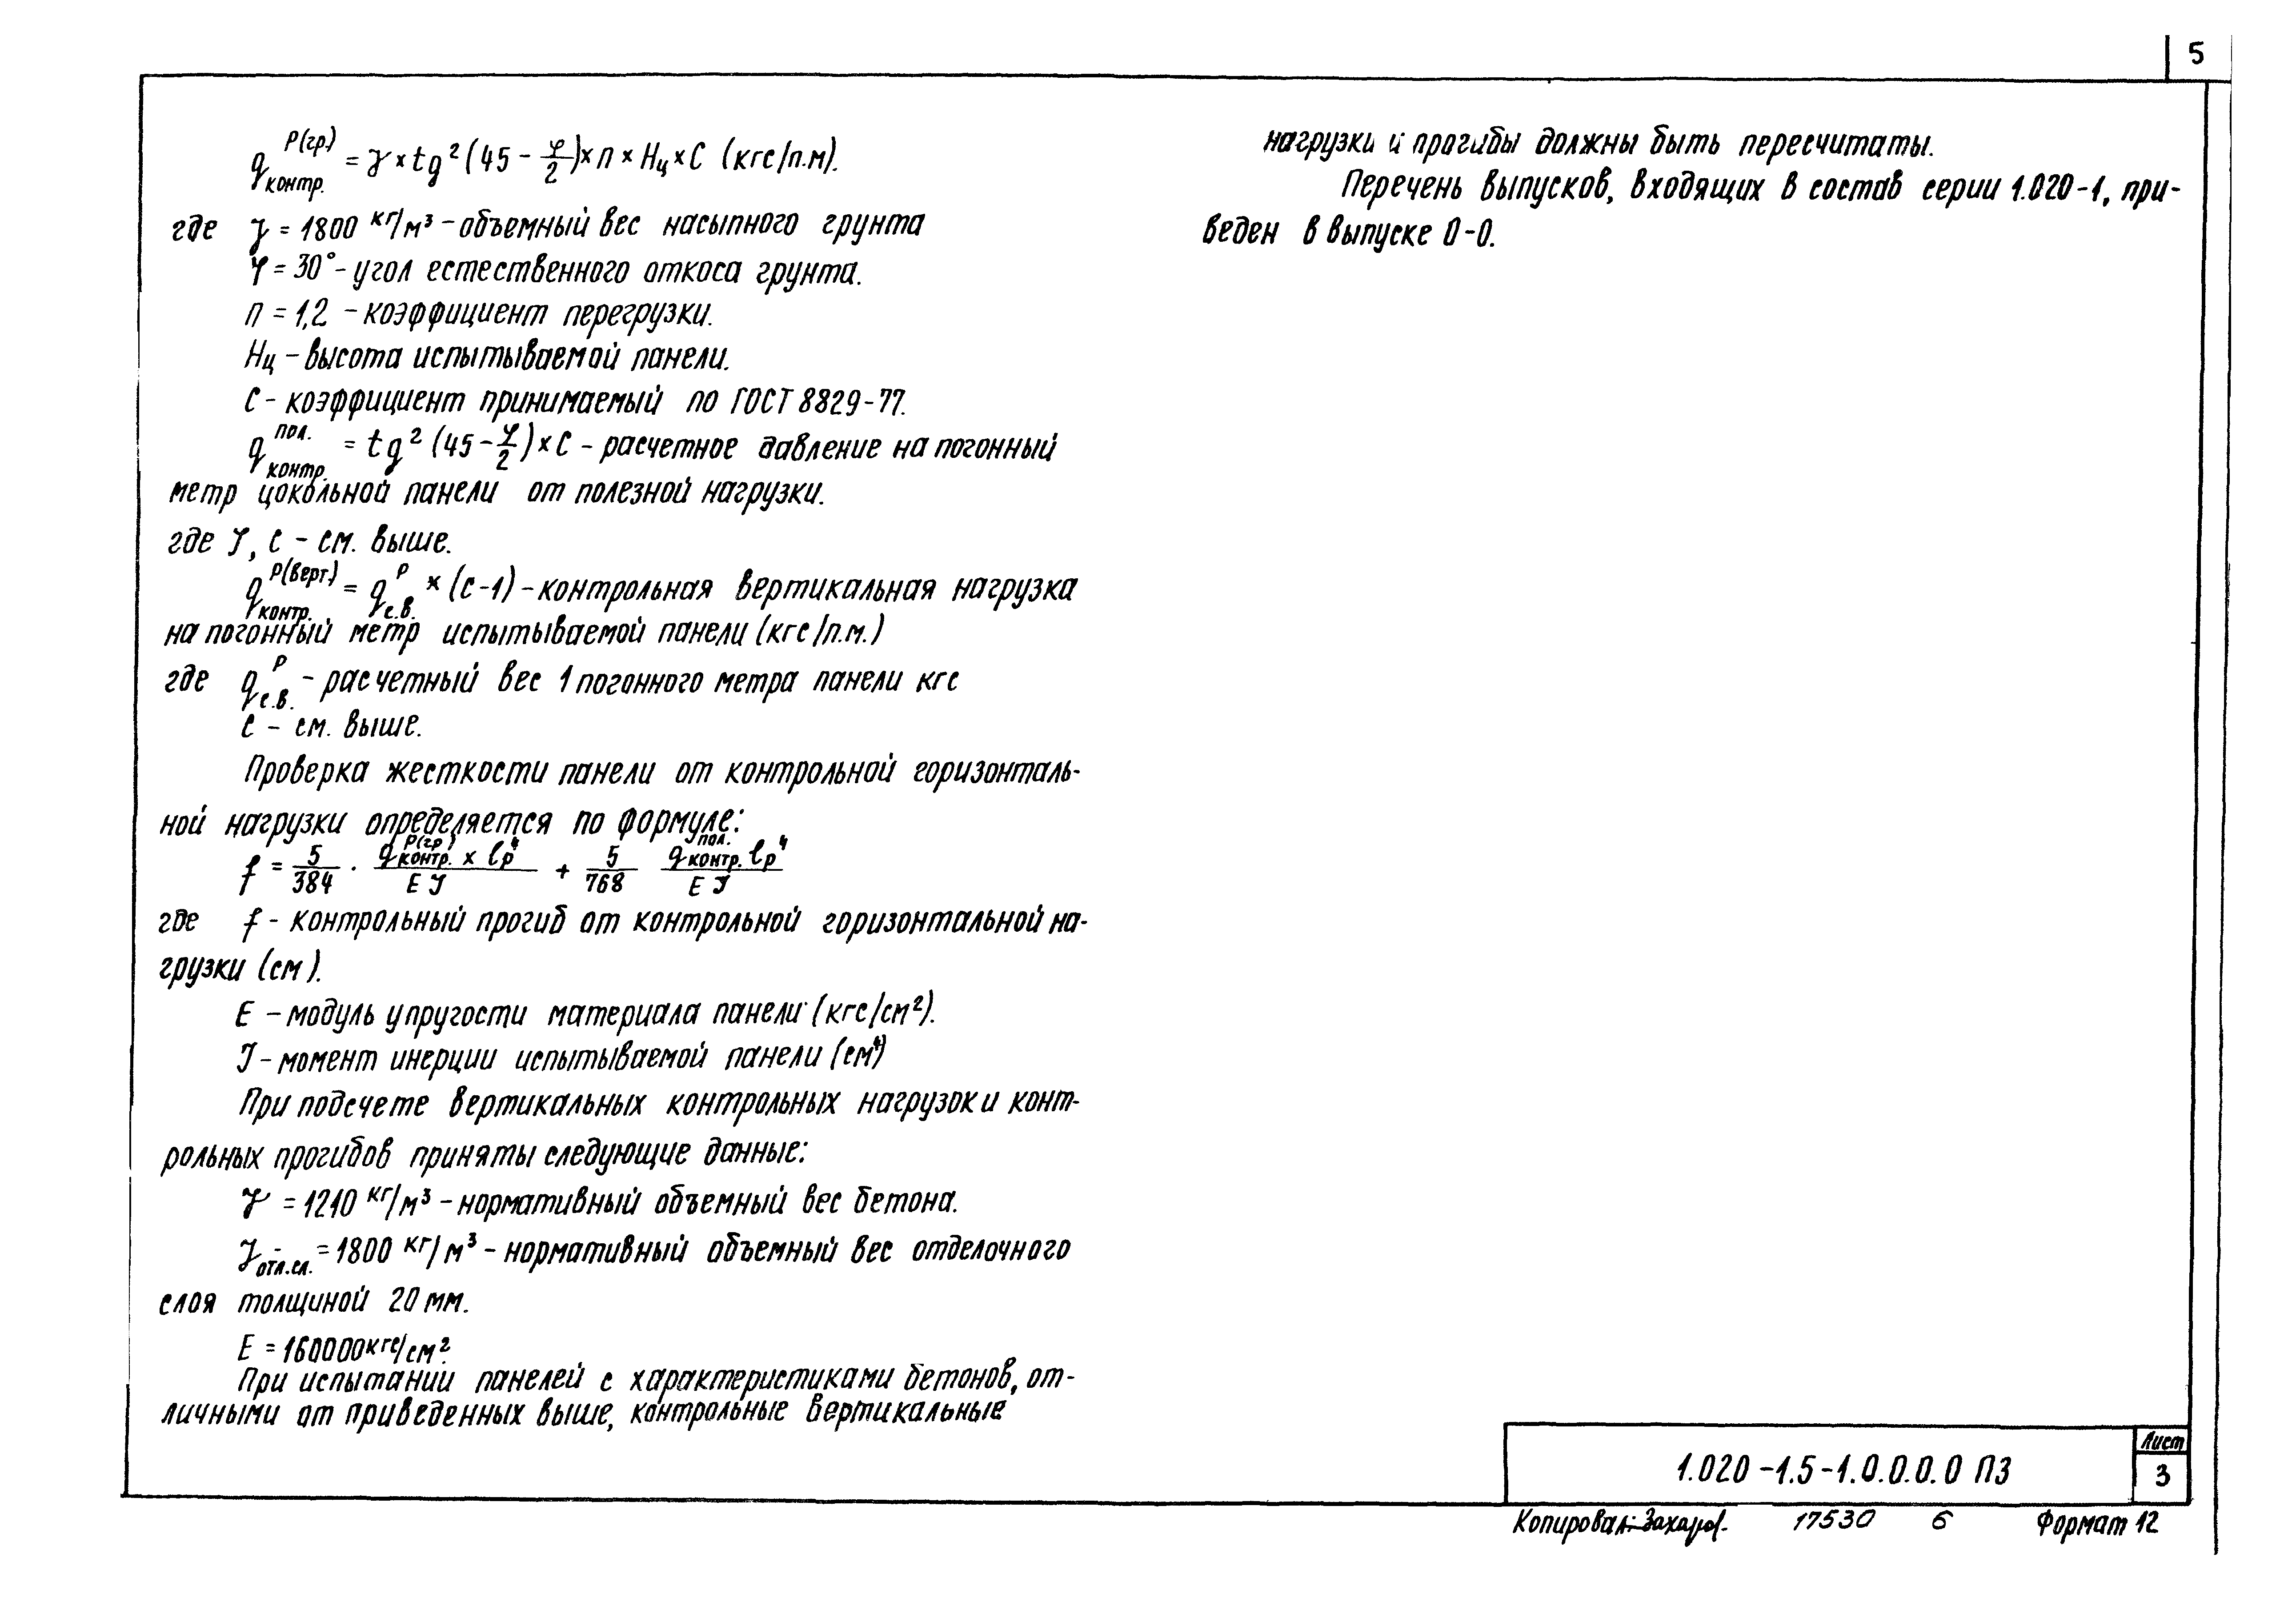 5
q контр. Р(гр.) = γ × tg² (45 - φ/2) × п × Нц × С (кгс/п.м).
где γ = 1800 кг/м³ - объемный вес насыпного грунта
φ = 30° - угол естественного откоса грунта.
п = 1,2 - коэффициент перегрузки.
Нц - высота испытываемой панели.
С - коэффициент принимаемый по ГОСТ 8829-77.
q контр. пол. = tg² (45 - φ/2) × С - расчетное давление на погонный
метр цокольной панели от полезной нагрузки.
где φ, С - см. выше.
q контр. Р(верт.) = q с.в. Р × (С-1) - контрольная вертикальная нагрузка
на погонный метр испытываемой панели (кгс/п.м.)
где q с.в. Р - расчетный вес 1 погонного метра панели кгс
С - см. выше.
Проверка жесткости панели от контрольной горизонталь-
ной нагрузки определяется по формуле:
f = 5/384 · q контр. Р(гр) × lр⁴ / E J + 5/768 q контр. пол. lр⁴ / E J
где f - контрольный прогиб от контрольной горизонтальной на-
грузки (см).
E - модуль упругости материала панели (кгс/см²).
J - момент инерции испытываемой панели (см⁴)
При подсчете вертикальных контрольных нагрузок и конт-
рольных прогибов приняты следующие данные:
γ = 1210 кг/м³ - нормативный объемный вес бетона.
γ отл.сл. = 1800 кг/м³ - нормативный объемный вес отделочного
слоя толщиной 20 мм.
E = 160000 кгс/см².
При испытании панелей с характеристиками бетонов, от-
личными от приведенных выше, контрольные вертикальные
нагрузки и прогибы должны быть пересчитаты.
Перечень выпусков, входящих в состав серии 1.020-1, при-
веден в выпуске 0-0.
1.020-1.5-1.0.0.0.0 ПЗ
Лист
3
Копировал: Захаров. 17530 6 Формат 12